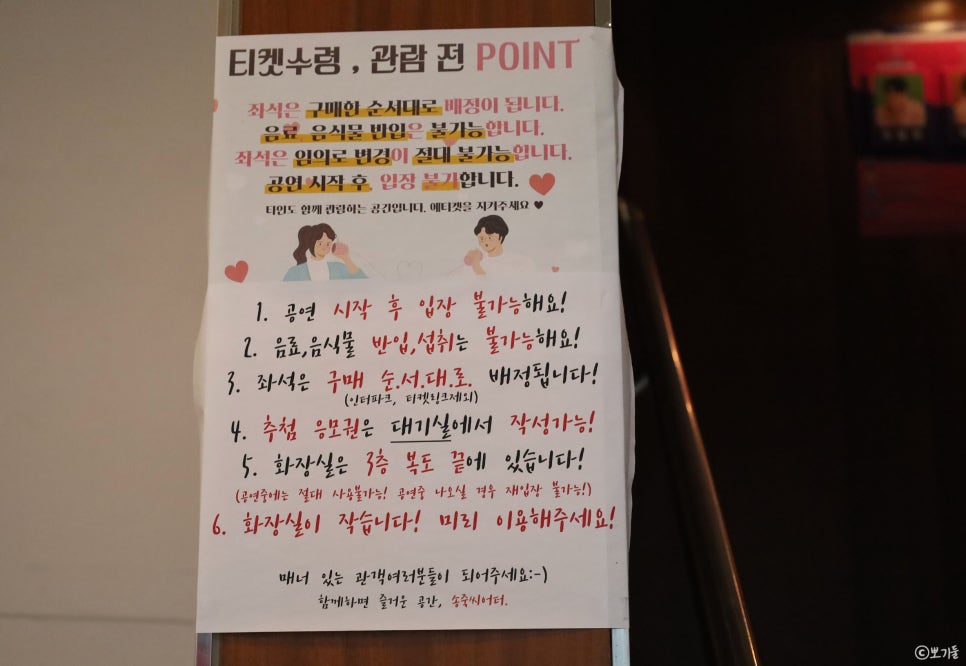 티켓수령, 관람 전 POINT
좌석은 구매한 순서대로 배정이 됩니다.
음료, 음식물 반입은 불가능합니다.
좌석은 임의로 변경이 절대 불가능합니다.
공연 시작 후, 입장 불가합니다.
타인도 함께 관람하는 공간입니다. 에티켓을 지켜주세요 ♥
1. 공연 시작 후 입장 불가능해요!
2. 음료,음식물 반입,섭취는 불가능해요!
3. 좌석은 구매 순.서.대.로. 배정됩니다!
(인터파크, 티켓링크제외)
4. 추첨 응모권은 대기실에서 작성가능!
5. 화장실은 3층 복도 끝에 있습니다!
(공연중에는 절대 사용불가능! 공연중 나오실 경우 재입장 불가능!)
6. 화장실이 작습니다! 미리 이용해주세요!
매너 있는 관객여러분들이 되어주세요:-)
함께하면 즐거운 공간, 송죽씨어터.
ⓒ뽀기둘